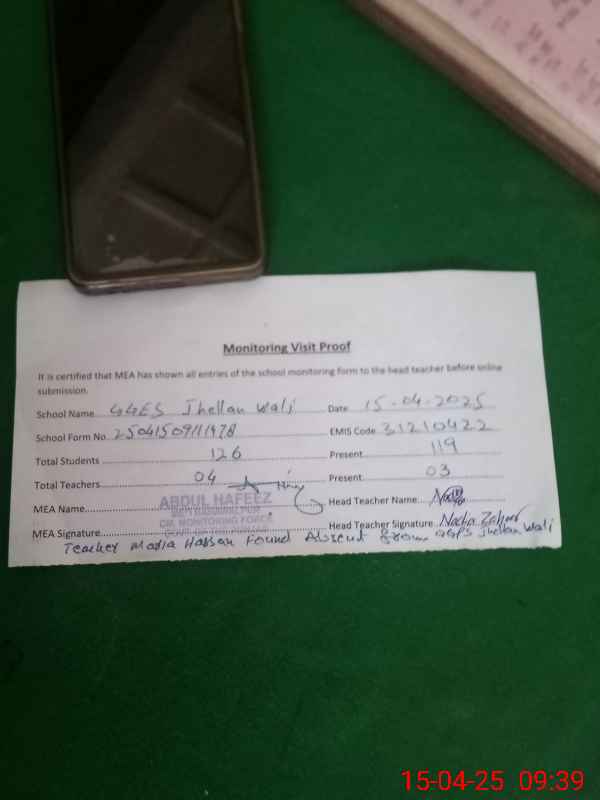 Monitoring Visit Proof
It is certified that MEA has shown all entries of the school monitoring form to the head teacher before online
submission.
School Name GGES Jhellan Wali Date 15-04-2025
School Form No. 25041509111978 EMIS Code 31210422
Total Students 126 Present 119
Total Teachers 04 Present 03
MEA Name ABDUL HAFEEZ Head Teacher Name
CM, MONITORING FORCE
MEA Signature Head Teacher Signature Nadia Zahoor
Teacher Madia Hassan Found Absent From GGPS Jhellan Wali
15-04-25 09:39